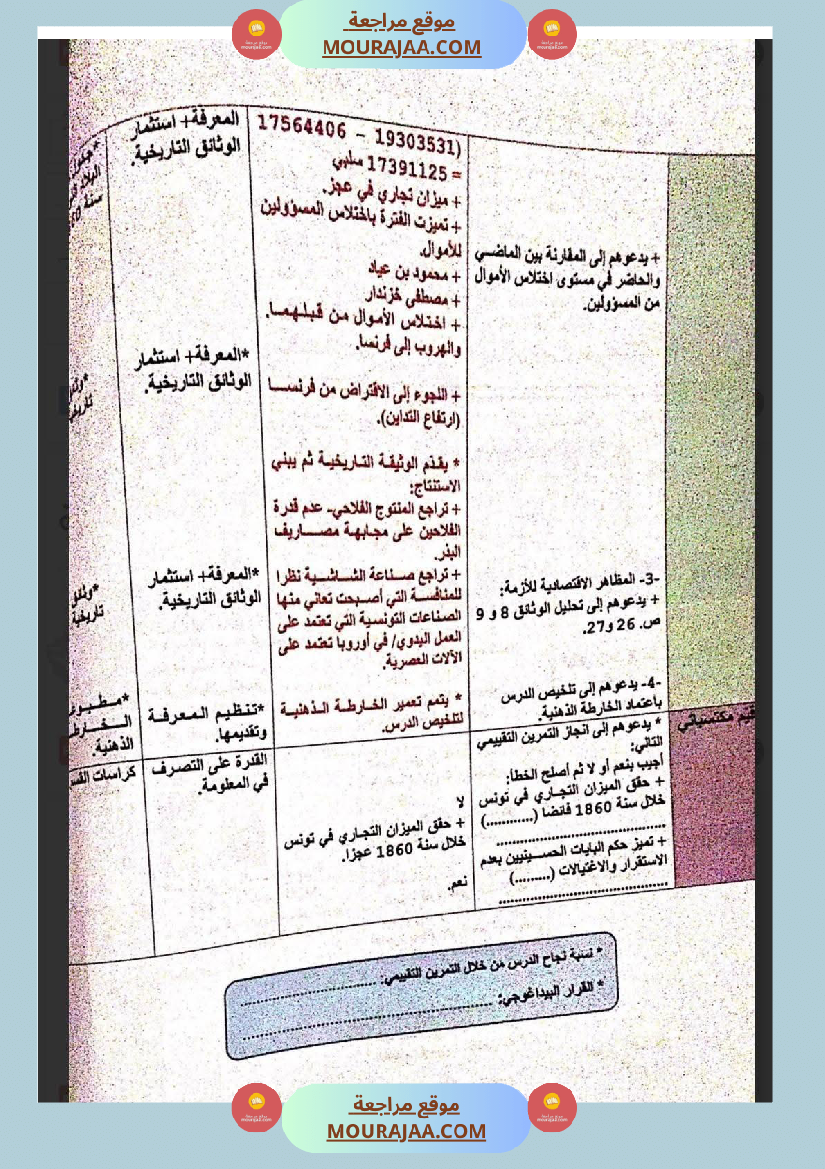 موقع مراجعة
MOURAJAA.COM
+ يدعوهم إلى المقارنة بين الماضي
والحاضر في مستوى اختلاس الأموال
من المسؤولين.
-3- المظاهر الاقتصادية للأزمة:
+ يدعوهم إلى تحليل الوثائق 8 و 9
ص. 26 و27.
-4- يدعوهم إلى تلخيص الدرس
باعتماد الخارطة الذهنية.
(19303531 – 17564406
= 17391125 سلبي
+ ميزان تجاري في عجز.
+ تميزت الفترة باختلاس المسؤولين
للأموال.
+ محمود بن عياد
+ مصطفى خزندار
+ اختلاس الأموال من قبلهما.
والهروب إلى فرنسا.
+ اللجوء إلى الاقتراض من فرنسا
(ارتفاع التداين).
* يقدم الوثيقة التاريخية ثم يبني
الاستنتاج:
+ تراجع المنتوج الفلاحي- عدم قدرة
الفلاحين على مجابهة مصاريف
البذر.
+ تراجع صناعة الشاشية نظرا
للمنافسة التي أصبحت تعاني منها
الصناعات التونسية التي تعتمد على
العمل اليدوي/ في أوروبا تعتمد على
الآلات العصرية.
* يتم تعمير الخارطة الذهنية
لتلخيص الدرس.
المعرفة+ استثمار
الوثائق التاريخية.
*المعرفة+ استثمار
الوثائق التاريخية.
*المعرفة+ استثمار
الوثائق التاريخية.
*تنظيم المعرفة
وتقديمها.
الذهنية.
مكتسباتي
* يدعوهم إلى انجاز التمرين التقييمي
التالي:
أجيب بنعم أو لا ثم أصلح الخطأ:
+ حقق الميزان التجاري في تونس
خلال سنة 1860 فائضا (............)
..........................................
+ تميز حكم البايات الحسينيين بعدم
الاستقرار والاغتيالات (.........)
..........................................
لا
+ حقق الميزان التجاري في تونس
خلال سنة 1860 عجزا.
نعم.
القدرة على التصرف
في المعلومة.
كراسات
* نسبة نجاح الدرس من خلال التمرين التقييمي: ..................................
* القرار البيداغوجي: ..................................................
..................................................
موقع مراجعة
MOURAJAA.COM